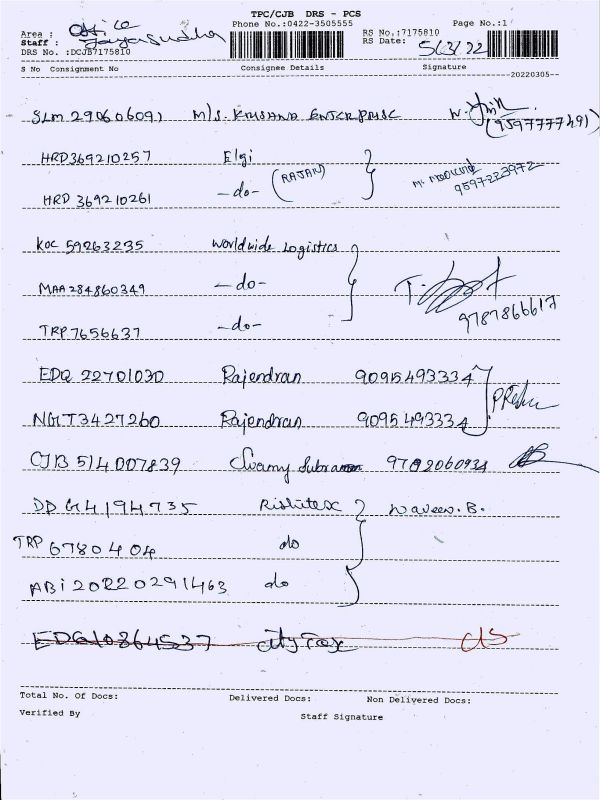 TPC/CJB DRS - PCS
Area : Office Phone No.:0422-3505555 Page No.:1
Staff : Jayasudha RS No.:7175810
DRS No. :DCJB7175810 RS Date: 5/3/22
S No Consignment No Consignee Details Signature
20220305
SLM 290606091 M/S. KRISANA ENTERPRISE (9597777491)
HRD369210257 Elgi
HRD 369210261 -do- (RAJAN) 9597223972
KOC 59263235 Worldwide Logistics
MAA 284860349 -do-
TRP 7656637 -do- 9787866617
EDQ 22701030 Rajendran 9095493334
NGT3427260 Rajendran 9095493334
CJB 514007839 Swamy 9782060934
DDG4194735 Rishitex Naveen.B.
TRP 6780404 do
ABI 20220291463 do
EDG10364537 city Tax
Total No. Of Docs: Delivered Docs: Non Delivered Docs:
Verified By Staff Signature